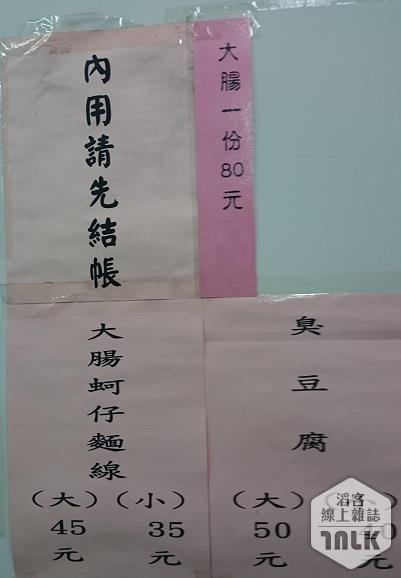 內用請先結帳
大腸一份80元
大腸蚵仔麵線
（大）（小）
45 35
元 元
臭豆腐
（大）
50
元 元
滔客
線上雜誌
TALK